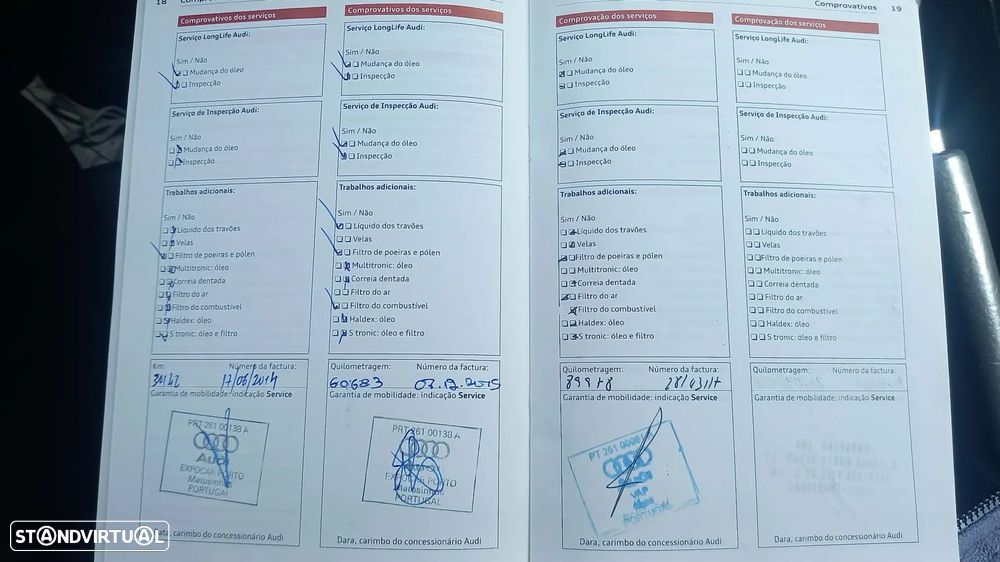 18
Comprovativos dos serviços
Serviço LongLife Audi:
Sim / Não
Mudança do óleo
Inspecção
Serviço de Inspecção Audi:
Sim / Não
Mudança do óleo
Inspecção
Trabalhos adicionais:
Sim / Não
Líquido dos travões
Velas
Filtro de poeiras e pólen
Multitronic: óleo
Correia dentada
Filtro do ar
Filtro do combustível
Haldex: óleo
S tronic: óleo e filtro
Km: Número da factura:
17/06/2014
Garantia de mobilidade: indicação Service
PRT 261 00138 A
Audi
EXPOCAR PORTO
Matosinhos
PORTUGAL
Data, carimbo do concessionário Audi
Comprovativos dos serviços
Serviço LongLife Audi:
Sim / Não
Mudança do óleo
Inspecção
Serviço de Inspecção Audi:
Sim / Não
Mudança do óleo
Inspecção
Trabalhos adicionais:
Sim / Não
Líquido dos travões
Velas
Filtro de poeiras e pólen
Multitronic: óleo
Correia dentada
Filtro do ar
Filtro do combustível
Haldex: óleo
S tronic: óleo e filtro
Quilometragem: Número da factura:
60683 07.12.2015
Garantia de mobilidade: indicação Service
PRT 261 00138 A
EXPOCAR PORTO
Matosinhos
PORTUGAL
Dara, carimbo do concessionário Audi
Comprovativos 19
Comprovação dos serviços
Serviço LongLife Audi:
Sim / Não
Mudança do óleo
Inspecção
Serviço de Inspecção Audi:
Sim / Não
Mudança do óleo
Inspecção
Trabalhos adicionais:
Sim / Não
Líquido dos travões
Velas
Filtro de poeiras e pólen
Multitronic: óleo
Correia dentada
Filtro do ar
Filtro do combustível
Haldex: óleo
S tronic: óleo e filtro
Quilometragem: Número da factura:
Garantia de mobilidade: indicação Service
PT 261
PORTUGAL
Dara, carimbo do concessionário Audi
Comprovação dos serviços
Serviço LongLife Audi:
Sim / Não
Mudança do óleo
Inspecção
Serviço de Inspecção Audi:
Sim / Não
Mudança do óleo
Inspecção
Trabalhos adicionais:
Sim / Não
Líquido dos travões
Velas
Filtro de poeiras e pólen
Multitronic: óleo
Correia dentada
Filtro do ar
Filtro do combustível
Haldex: óleo
S tronic: óleo e filtro
Quilometragem: Número da factura:
Garantia de mobilidade: indicação Service
Dara, carimbo do concessionário Audi
STANDVIRTUAL